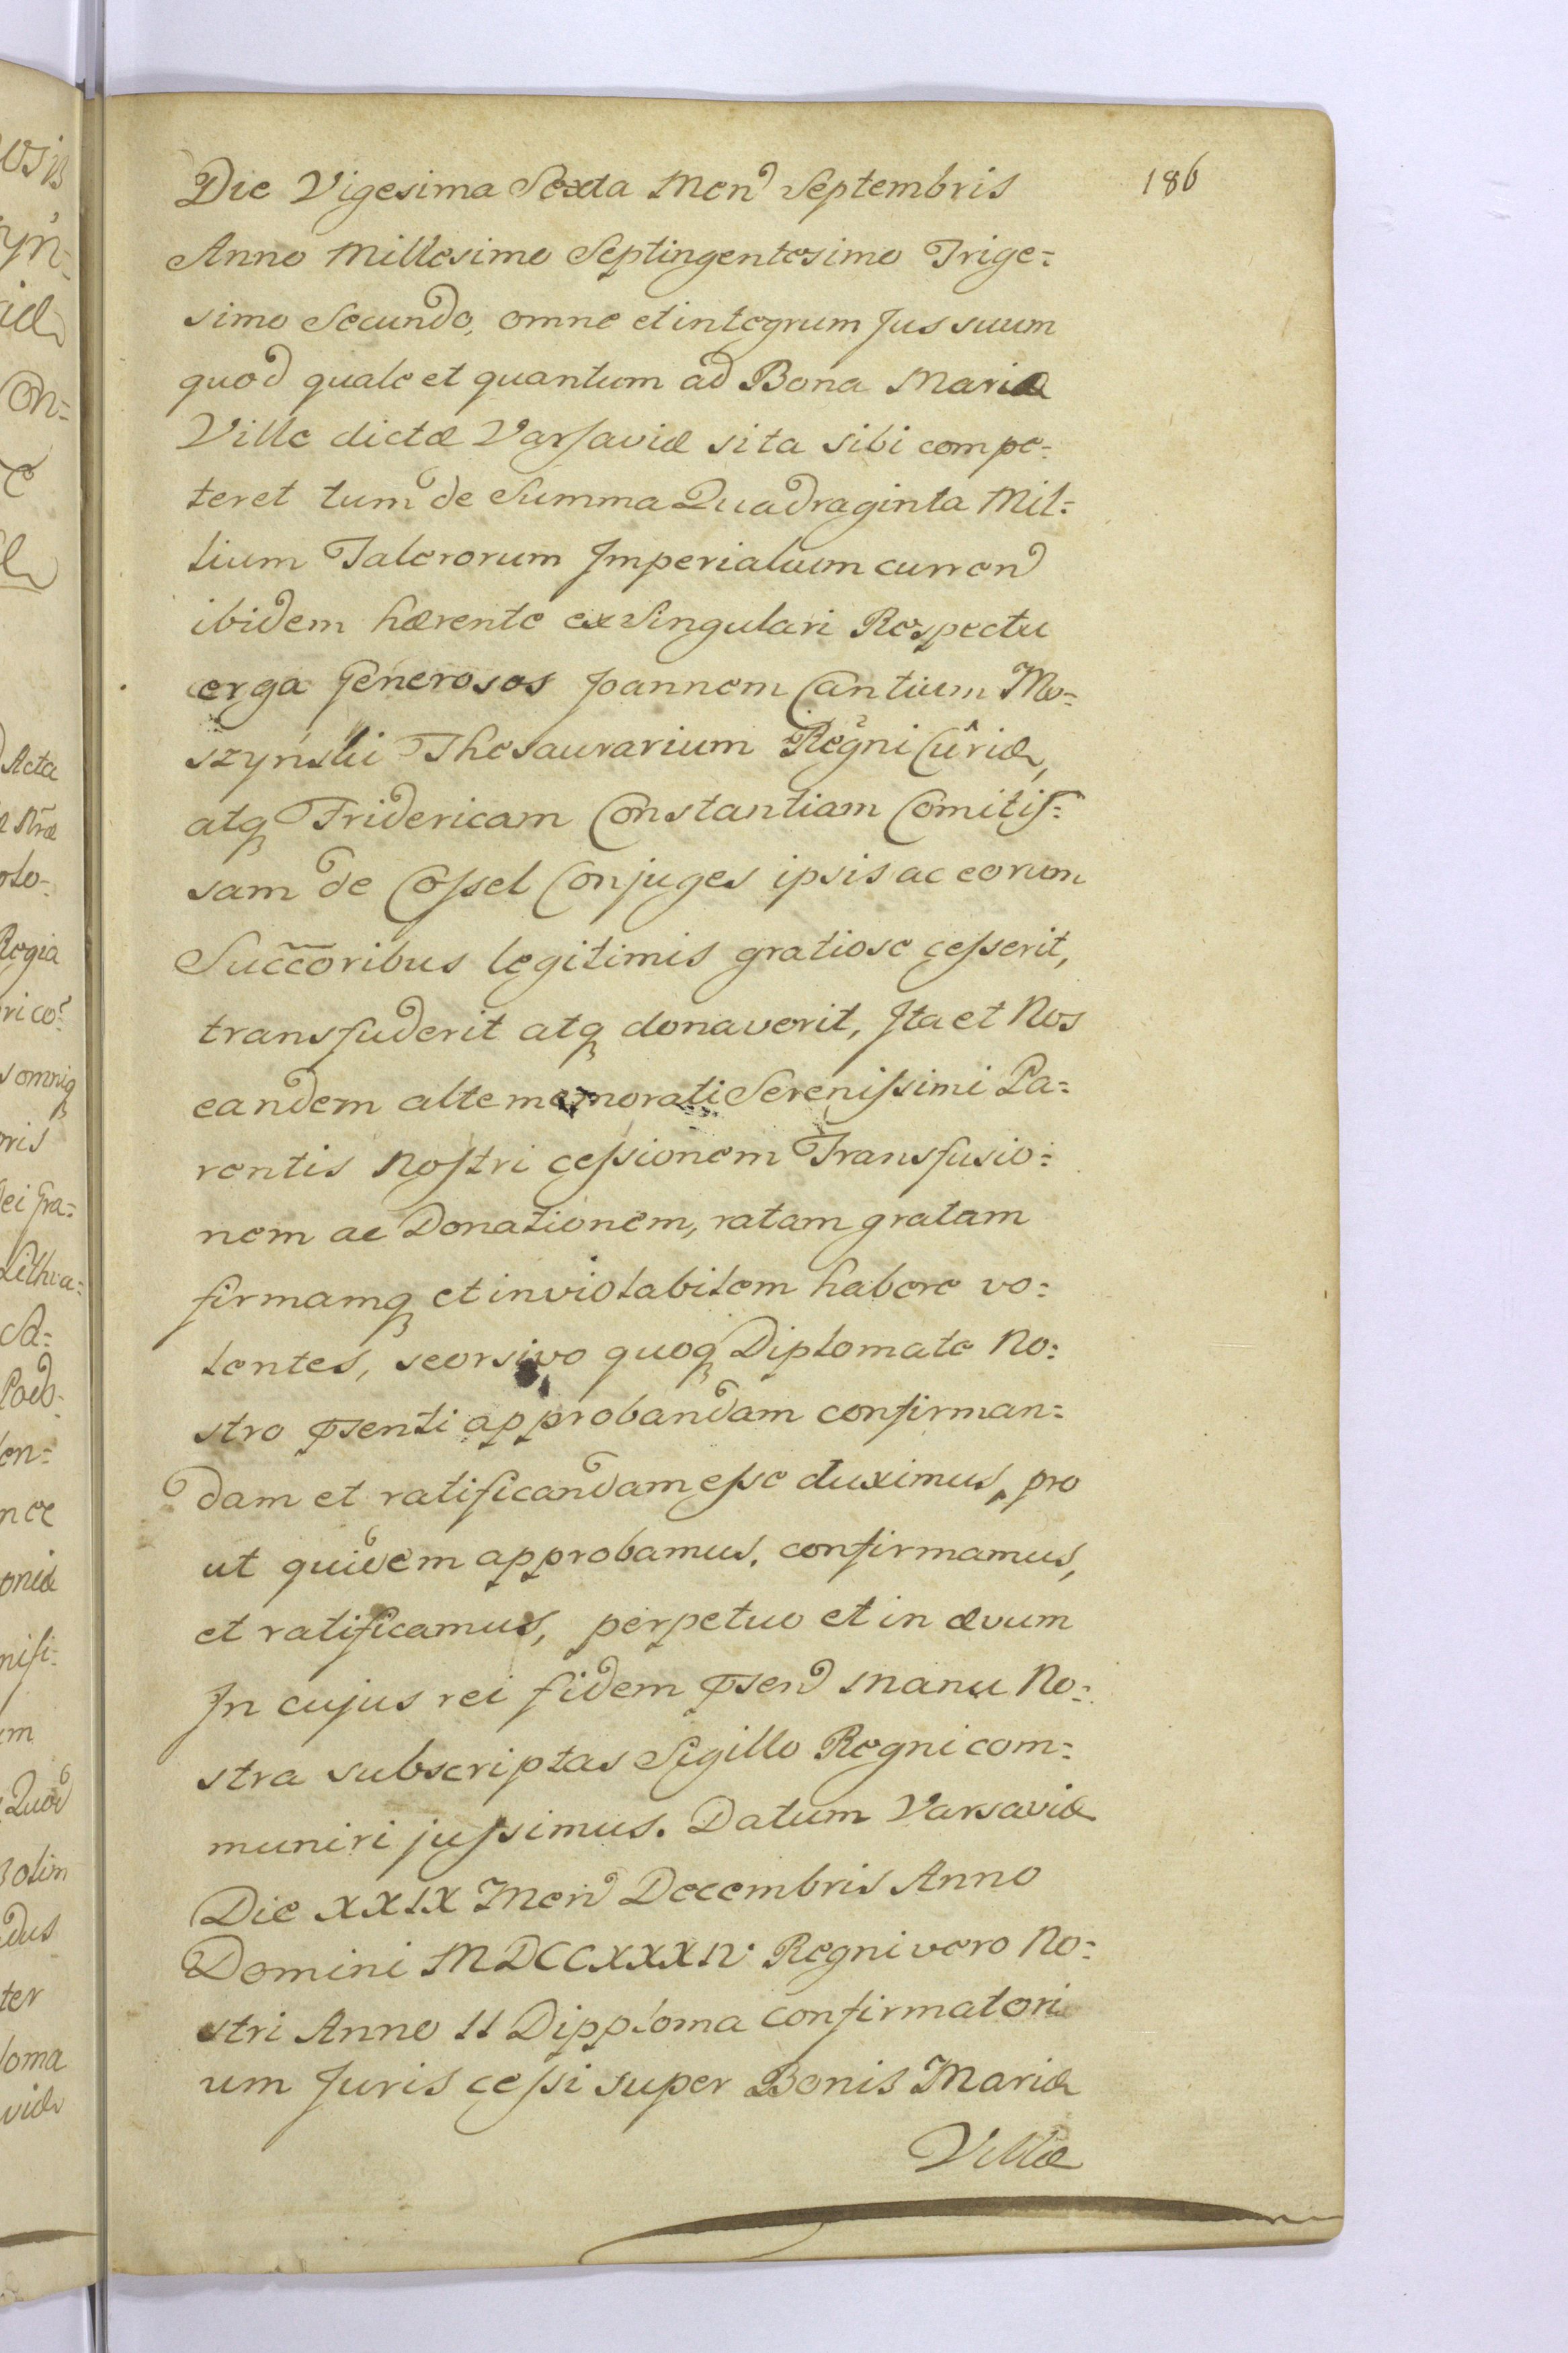 186
Die Vigesima Sexta Men Septembris
Anno Millesimo Septingentesimo Trige=
simo Secundo, omne et integrum Jus suum
quod quale et quantum ad Bona Mariæ
Ville dictæ Varsaviæ sita sibi compe=
teret tum de Summa Quadraginta Mil=
lium Talerorum Imperialium curren
ibidem hærente ex Singulari Respectu
erga Generosos Joannem Cantium Mo=
szynski Thesaurarium Regni Curiæ,
atq Fridericam Constantiam Comitis=
sam de Cossel Conjuges ipsis ac eorum
Succoribus legitimis gratiose cesserit,
transfuderit atq donaverit, Ita et Nos
eandem alte memorati Serenissimi Pa=
rentis Nostri cessionem Transfusio=
nem ac Donationem, ratam gratam
firmamq et inviolabilem habere vo=
lentes, seorsivo quoq Diplomate No=
stro psenti approbandam confirman=
dam et ratificandam esse duximus, pro
ut quidem approbamus, confirmamus,
et ratificamus, perpetuo et in ævum
In cujus rei fidem psen manu No=
stra subscriptas Sigillo Regni com=
muniri jussimus. Datum Varsaviæ
Die XXIX Men Decembris Anno
Domini MDCCXXXIV. Regni vero No=
stri Anno II Dipploma confirmatori
um Juris cessi super Bonis Mariæ
Villæ